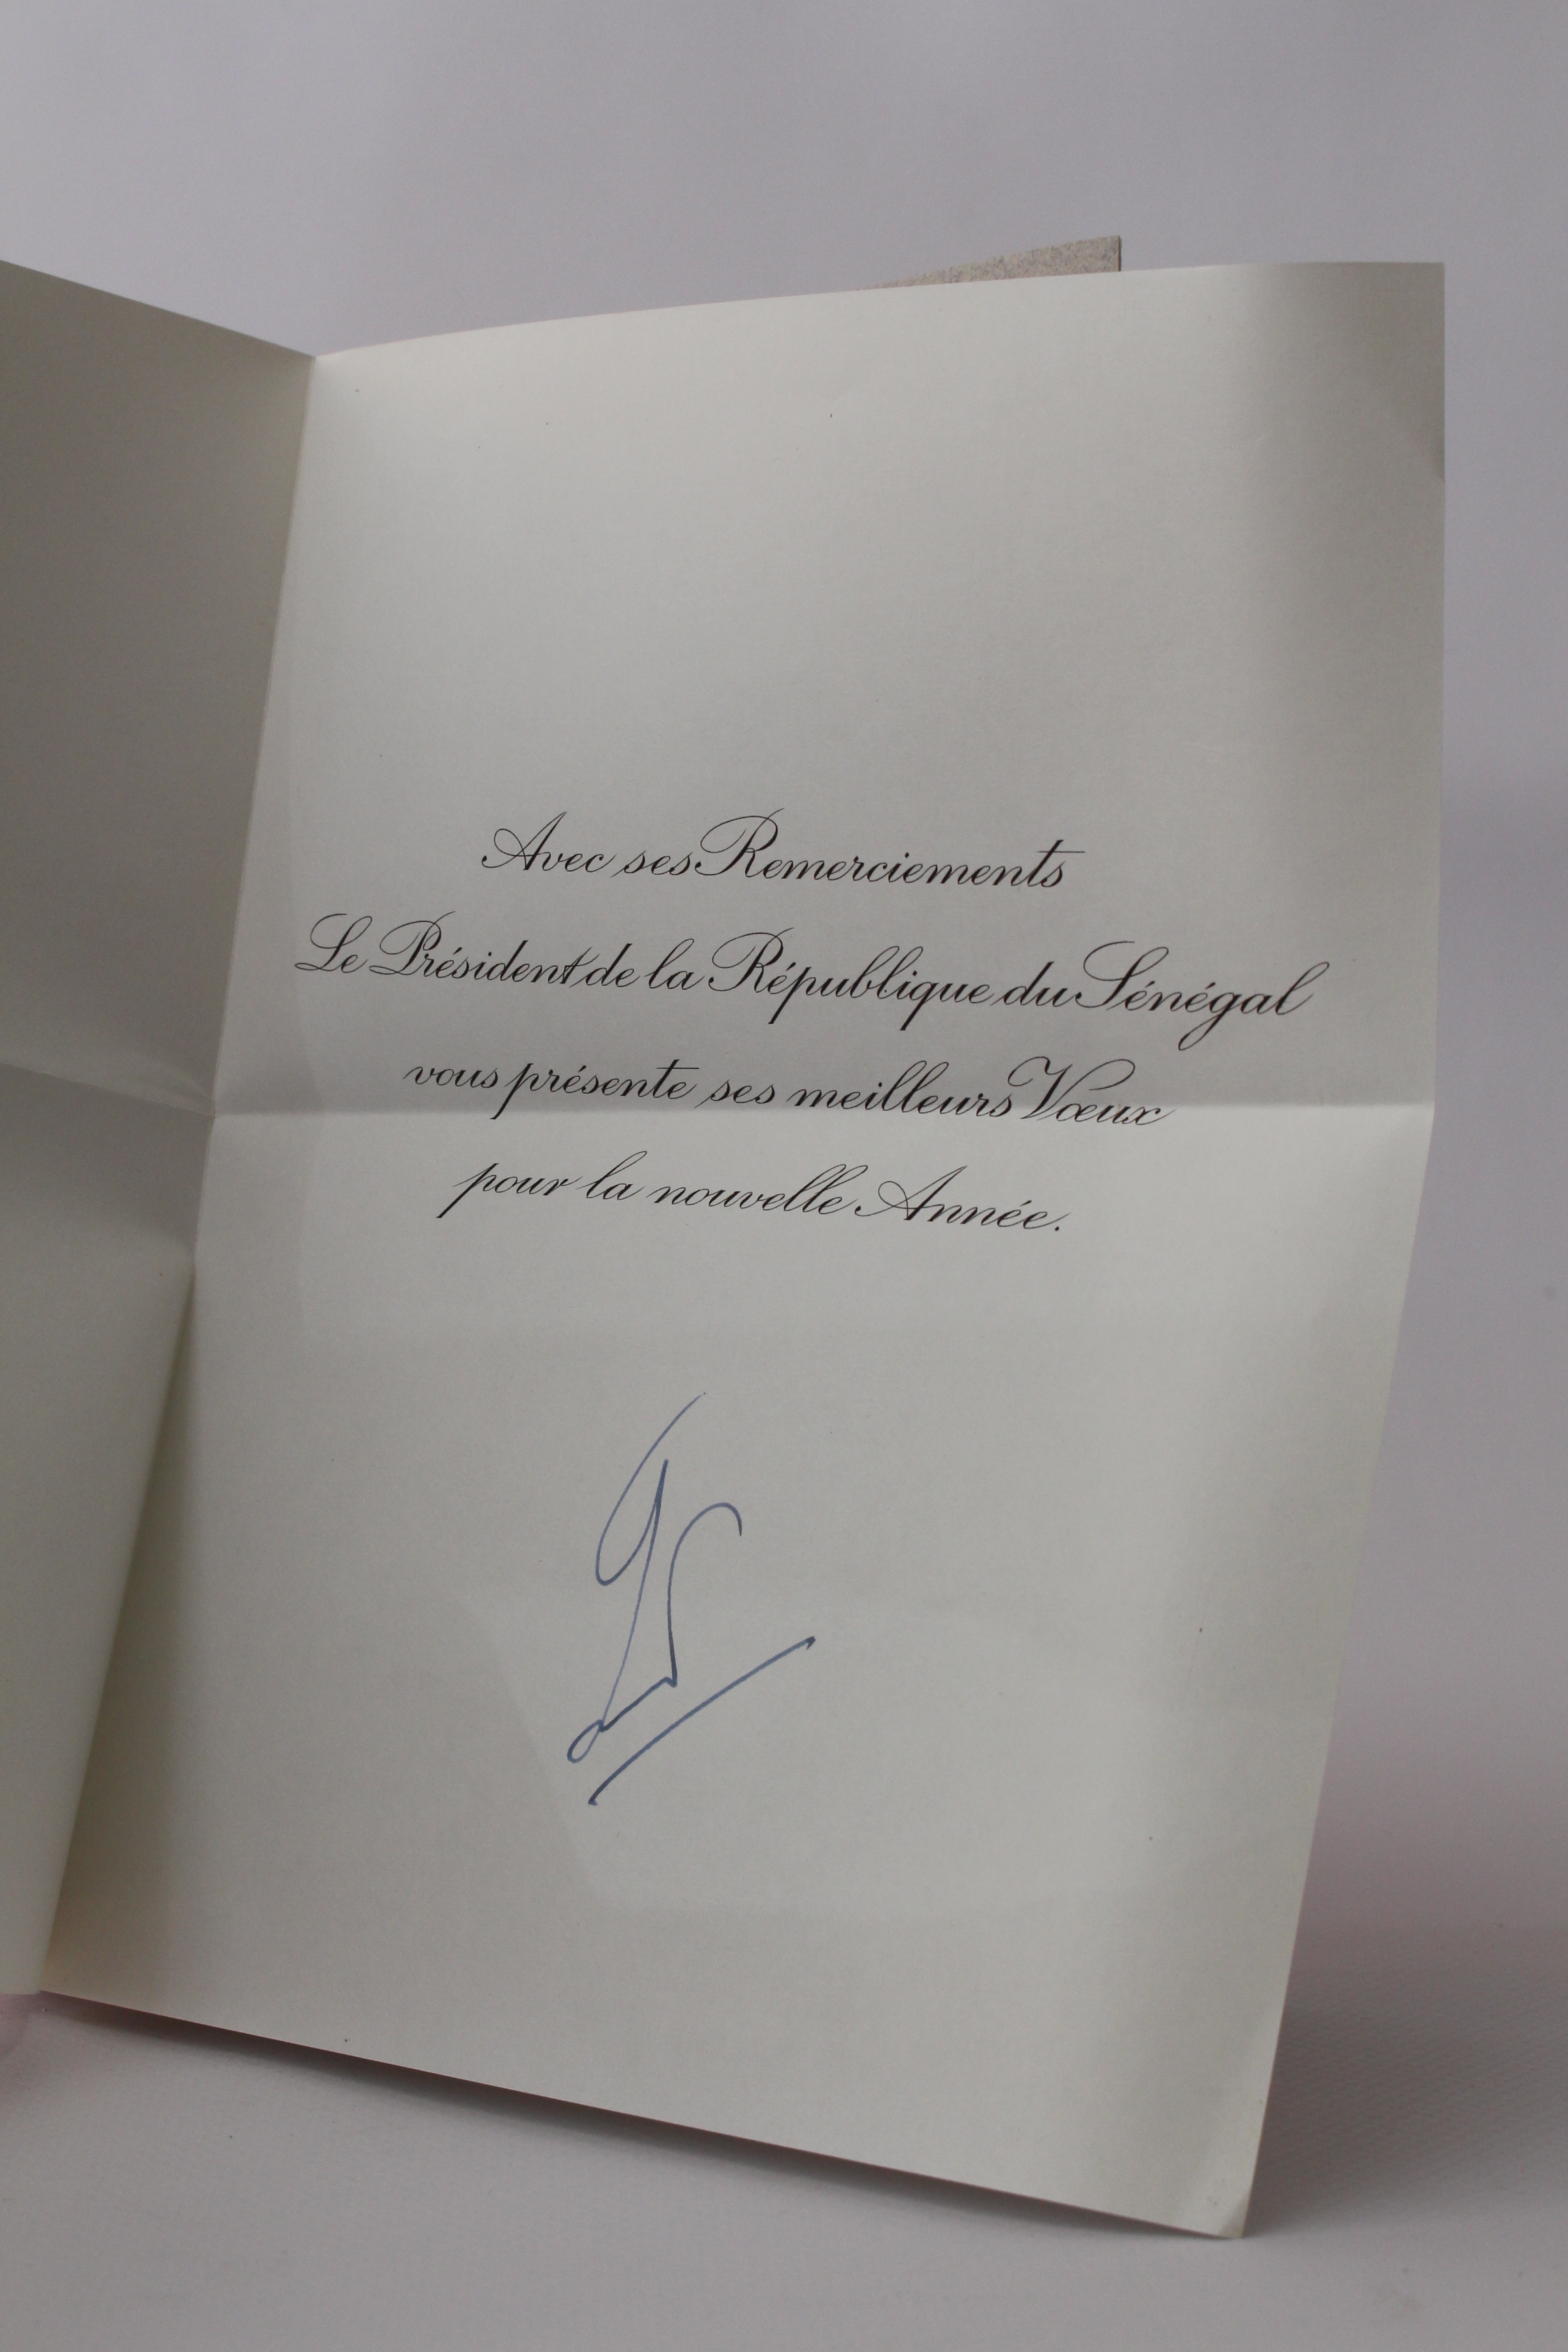 Avec ses Remerciements
Le Président de la République du Sénégal
vous présente ses meilleurs Vœux
pour la nouvelle Année.